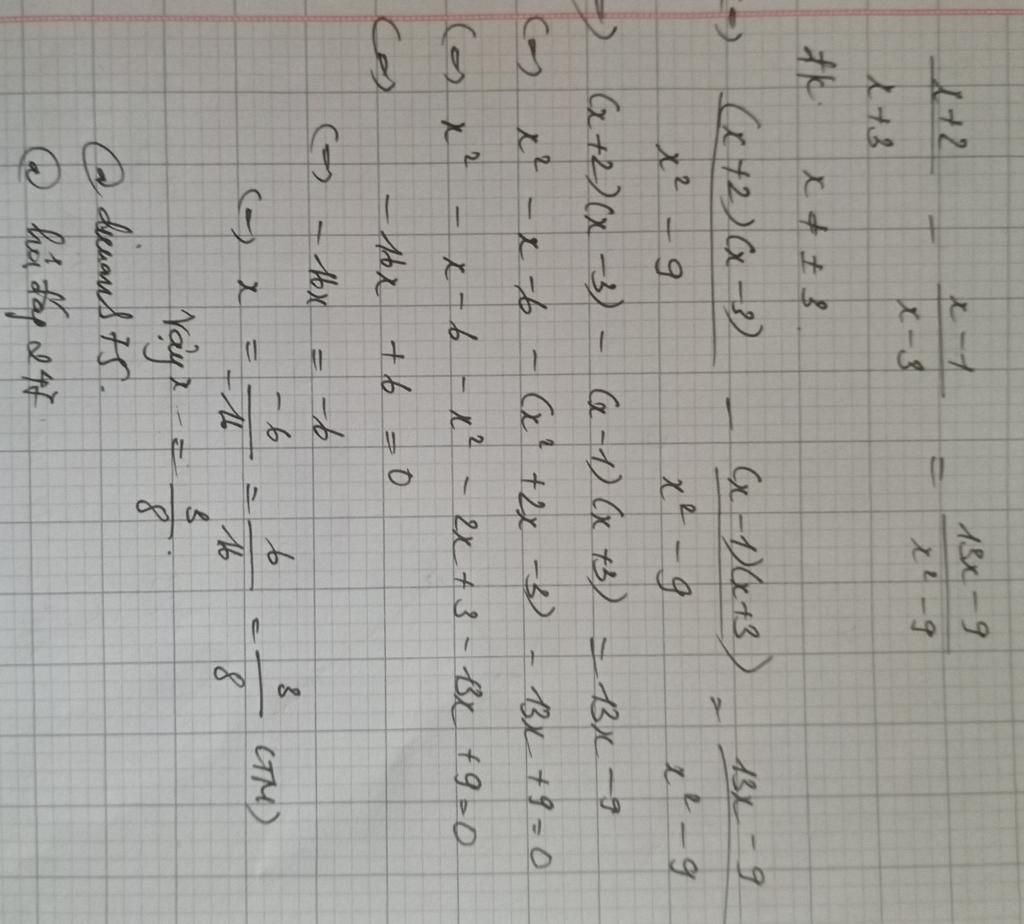 x+2/x+3 - x-1/x-3 = 13x-9/x²-9
đk x ≠ ±3
(=) (x+2)(x-3)/x²-9 - (x-1)(x+3)/x²-9 = 13x-9/x²-9
=) (x+2)(x-3) - (x-1)(x+3) = 13x-9
(=) x² - x - 6 - (x² + 2x - 3) - 13x + 9 = 0
(=) x² - x - 6 - x² - 2x + 3 - 13x + 9 = 0
(=) -16x + 6 = 0
(=) -16x = -6
(=) x = -6/-16 = 6/16 = 3/8 (TM)
Vậy x = 3/8.
@ dieman8 75.
@ hỏi đáp 247